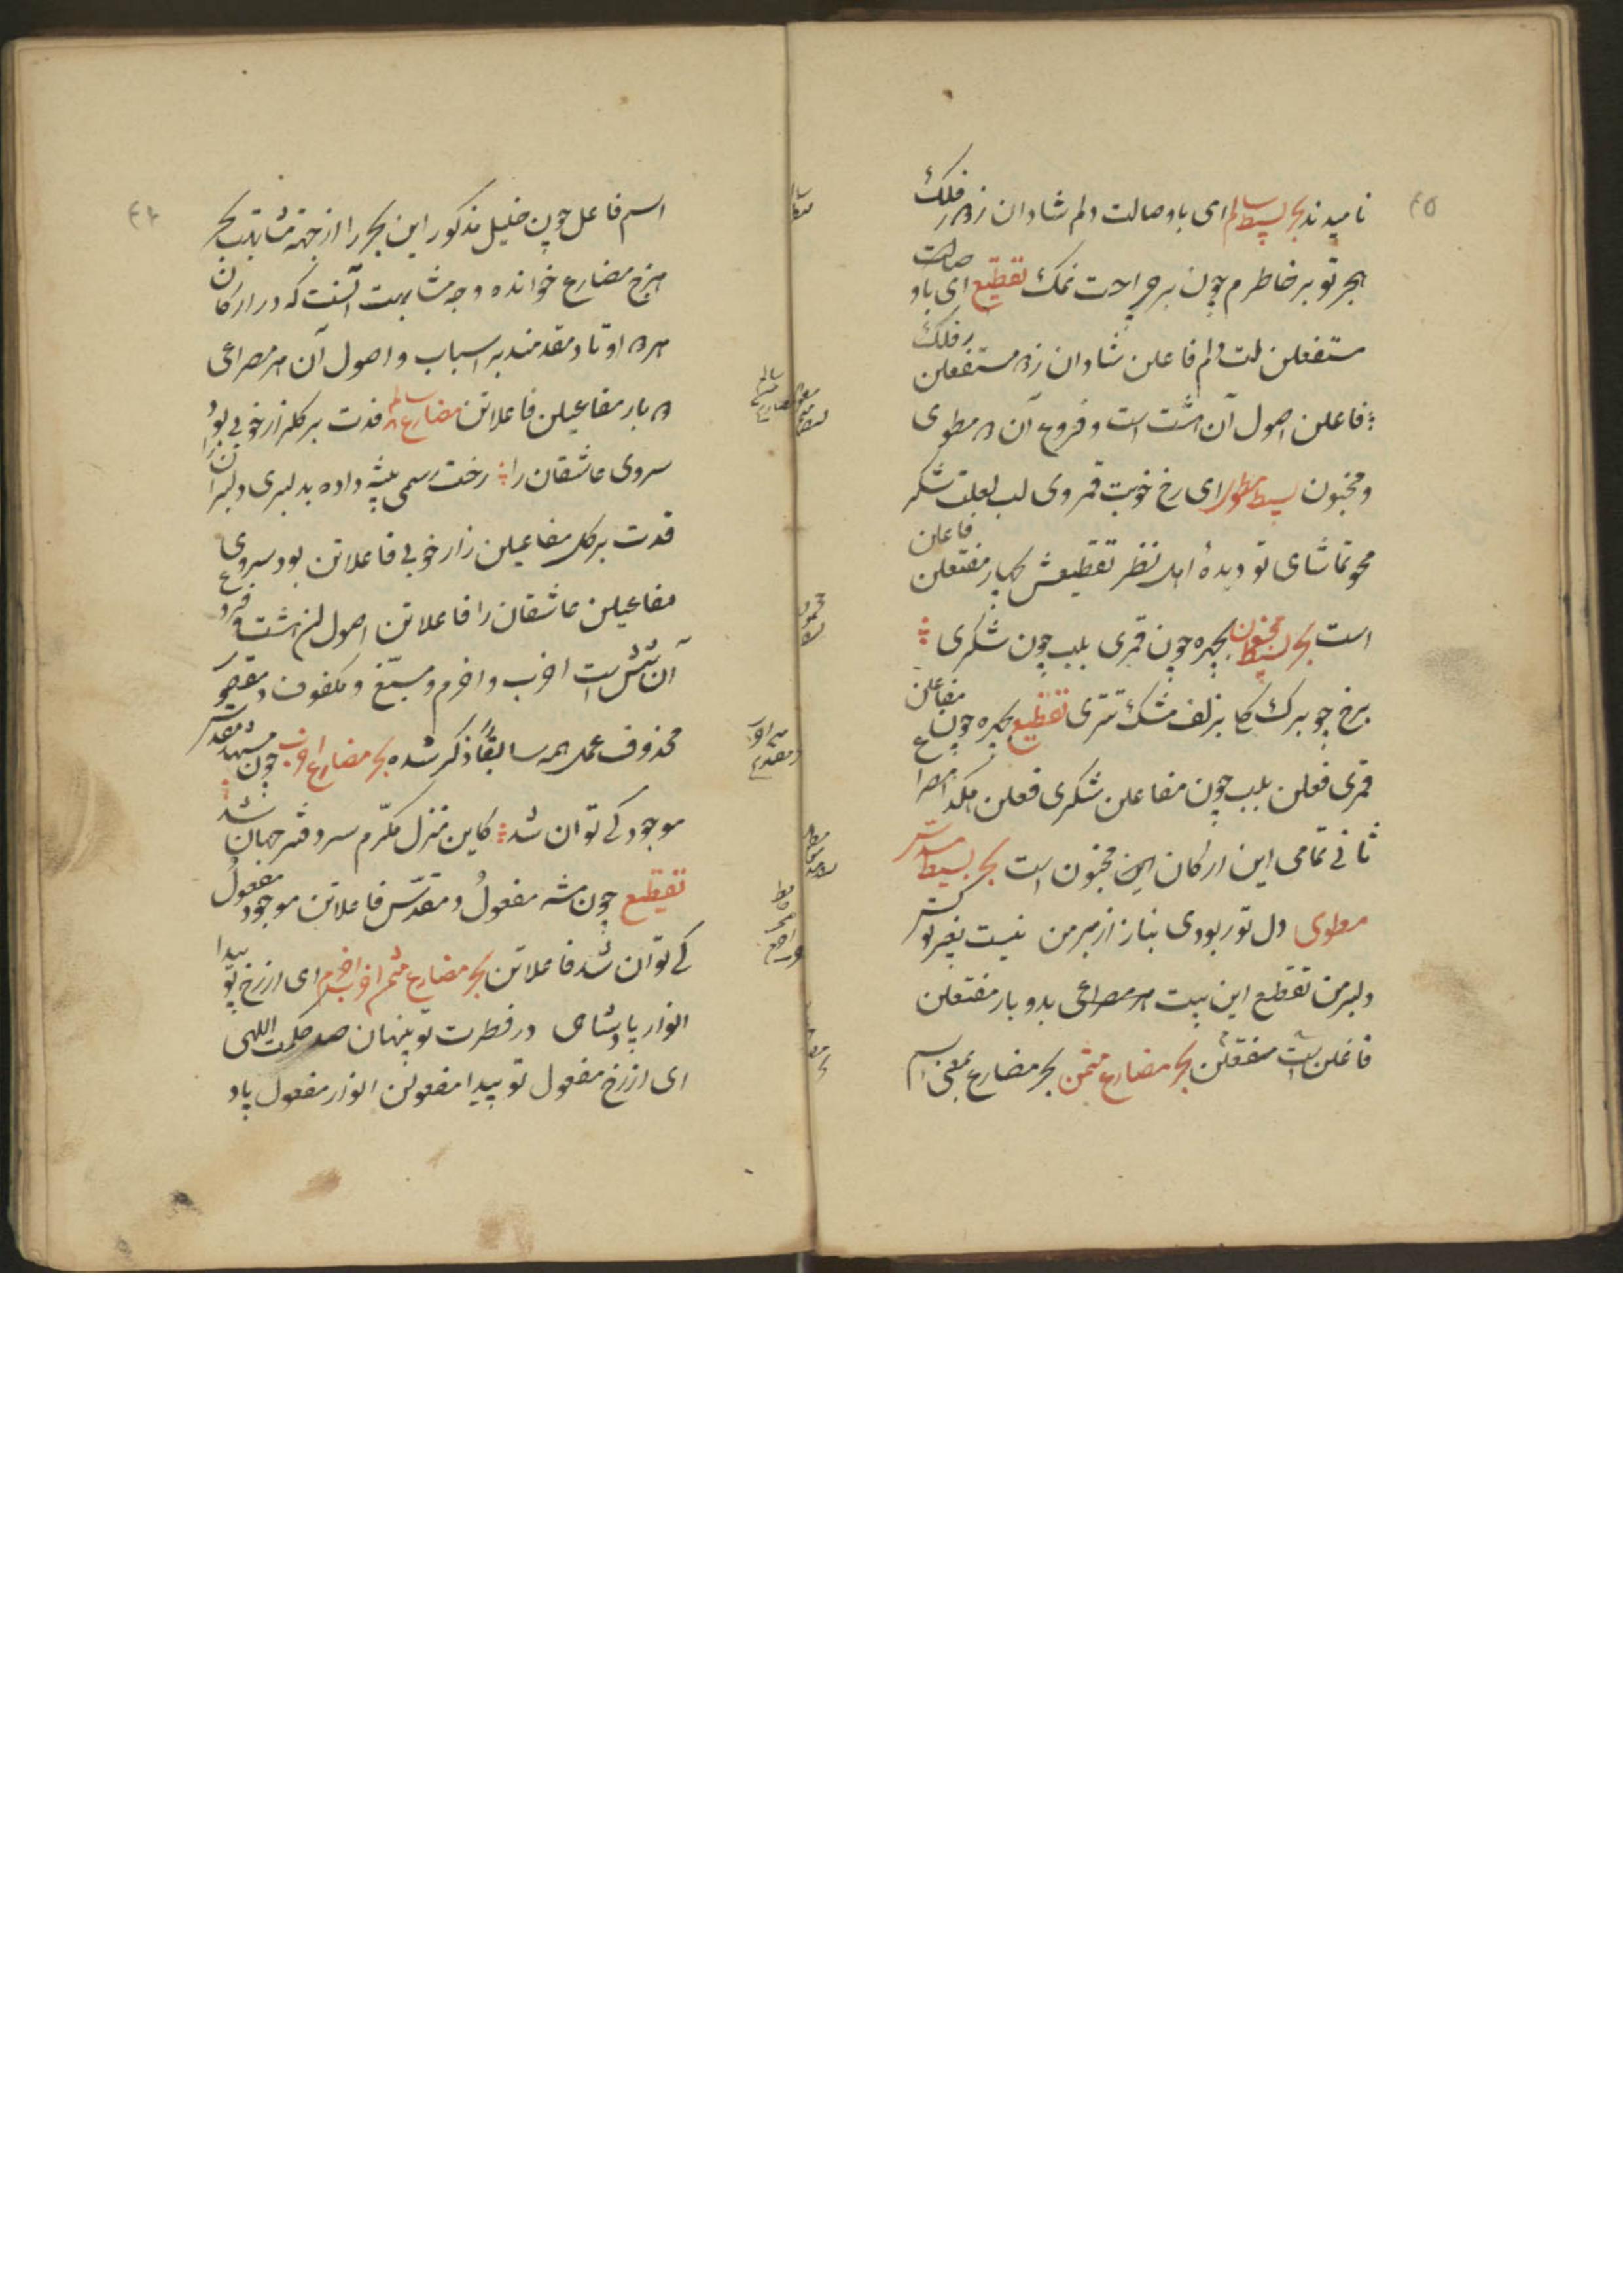 نامیدند بحر بسیط سالم ای باوصالت دلم شادان ز دور فلک
هجر تو بر خاطرم چون بر جراحت نمک تقطیع ای باو صالت
مستفعلن لت دلم فاعلن شادان ز دو مستفعلن ر فلک
فاعلن اصول آن هشت است و فروع آن دو مطوی
و مخبون بسیط مطوی ای رخ خوبت قمر وی لب لعلت شکر
محو تماشای تو دیدهٔ اهل نظر تقطیعش چهار مفتعلن فاعلن
است بحر بسیط مخبون بچهره چون قمری بلب چون شکری
برخ چو برک کلی بزلف مشک تتری تقطیع بچهره چون مفاعلن
قمری فعلن بلب چون مفاعلن شکری فعلن هکذا مصراع
ثانی تمامی این ارکان مخبون است بحر بسیط مسدس
مطوی دل تو ربودی بناز از بر من نیست بغیر تو کسی
دلبر من تقطیع این بیت هر مصراعی بدو بار مفتعلن
فاعلن است مفتعلن بحر مضارع مثمن بحر مضارع بمعنی اسم
اسم فاعل چون خلیل مذکور این بحر را از جهة مشابهت بحر
هزج مضارع خوانده وجه مشابهت آنست که در ارکان
هر دو اوتاد مقدمند بر اسباب و اصول آن هر مصراعی
دو بار مفاعیلن فاعلاتن مضارع سالم قدت بر کلزار خوبی بود
سروی عاشقان را رخت رسمی پیشه داده بدلبری دلبران را
قدت بر کل مفاعیلن زار خوبی فاعلاتن بود سروی
مفاعیلن عاشقان را فاعلاتن اصول این هشت و فروع
آن شش است اخرب و اخرم و مسبّغ و مکفوف و مقصور
محذوف عمل همه سابقاً ذکر شده بحر مضارع اخرب چون مشهد مقدس
موجود کی توان شد کاین منزل مکرّم سر دفتر جهان شد
تقطیع چون مشه مفعولُ د مقدّس فاعلاتن موجود مفعولُ
کی توان شد فاعلاتن بحر مضارع مثمن اخرب اخرم ای از رخ تو پیدا
انوار پادشاهی در فطرت تو پنهان صد حکمت اللهی
ای از رخ مفعول تو پیدا مفعولن انوار مفعول پاد